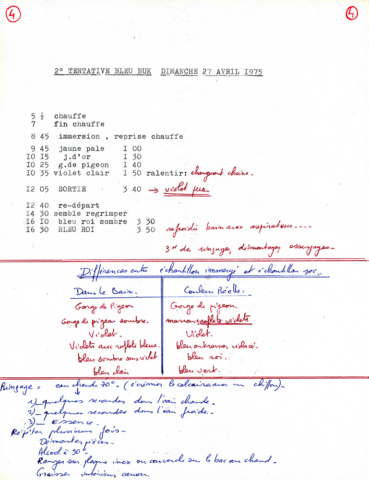 4
4
2° TENTATIVE BLEU BUK DIMANCHE 27 AVRIL 1975
5 ½ chauffe
7 fin chauffe
8 45 immersion , reprise chauffe
9 45 jaune pale I 00
IO I5 j.d'or I 30
IO 25 g.de pigeon I 40
IO 35 violet clair I 50 ralentir: changeant chaine.
I2 05 SORTIE 3 40 → violet pur.
I2 40 re-départ
I4 30 semble regrimper
I6 IO bleu roi sombre 3 30
I6 30 BLEU ROI 3 50 refroidi bain avec aspirateur....
3m de rinçage, démontages essuyages.
Différences entre échantillon immergé et échantillon sec.
Dans le Bain. Couleur Réelle:
Gorge de Pigeon Gorge de pigeon.
Gorge de pigeon sombre. marron reflets violets
Violet. Violet.
Violets avec reflets bleus. bleu
bleu sombre sur violet bleu roi.
bleu clair bleu vert.
Rinçage = eau chaude 70° - ( le calcaire avec un chiffon)-
1)- quelques secondes dans l'eau chaude.
2)- quelques secondes dans l'eau froide.
3)- Essence.
Répéter plusieurs fois-
Démonter pièces.
Alcool à 90°-
Ranger sur plaque inox ou couvercle sur le bac au chaud.
Graisser intérieur canon